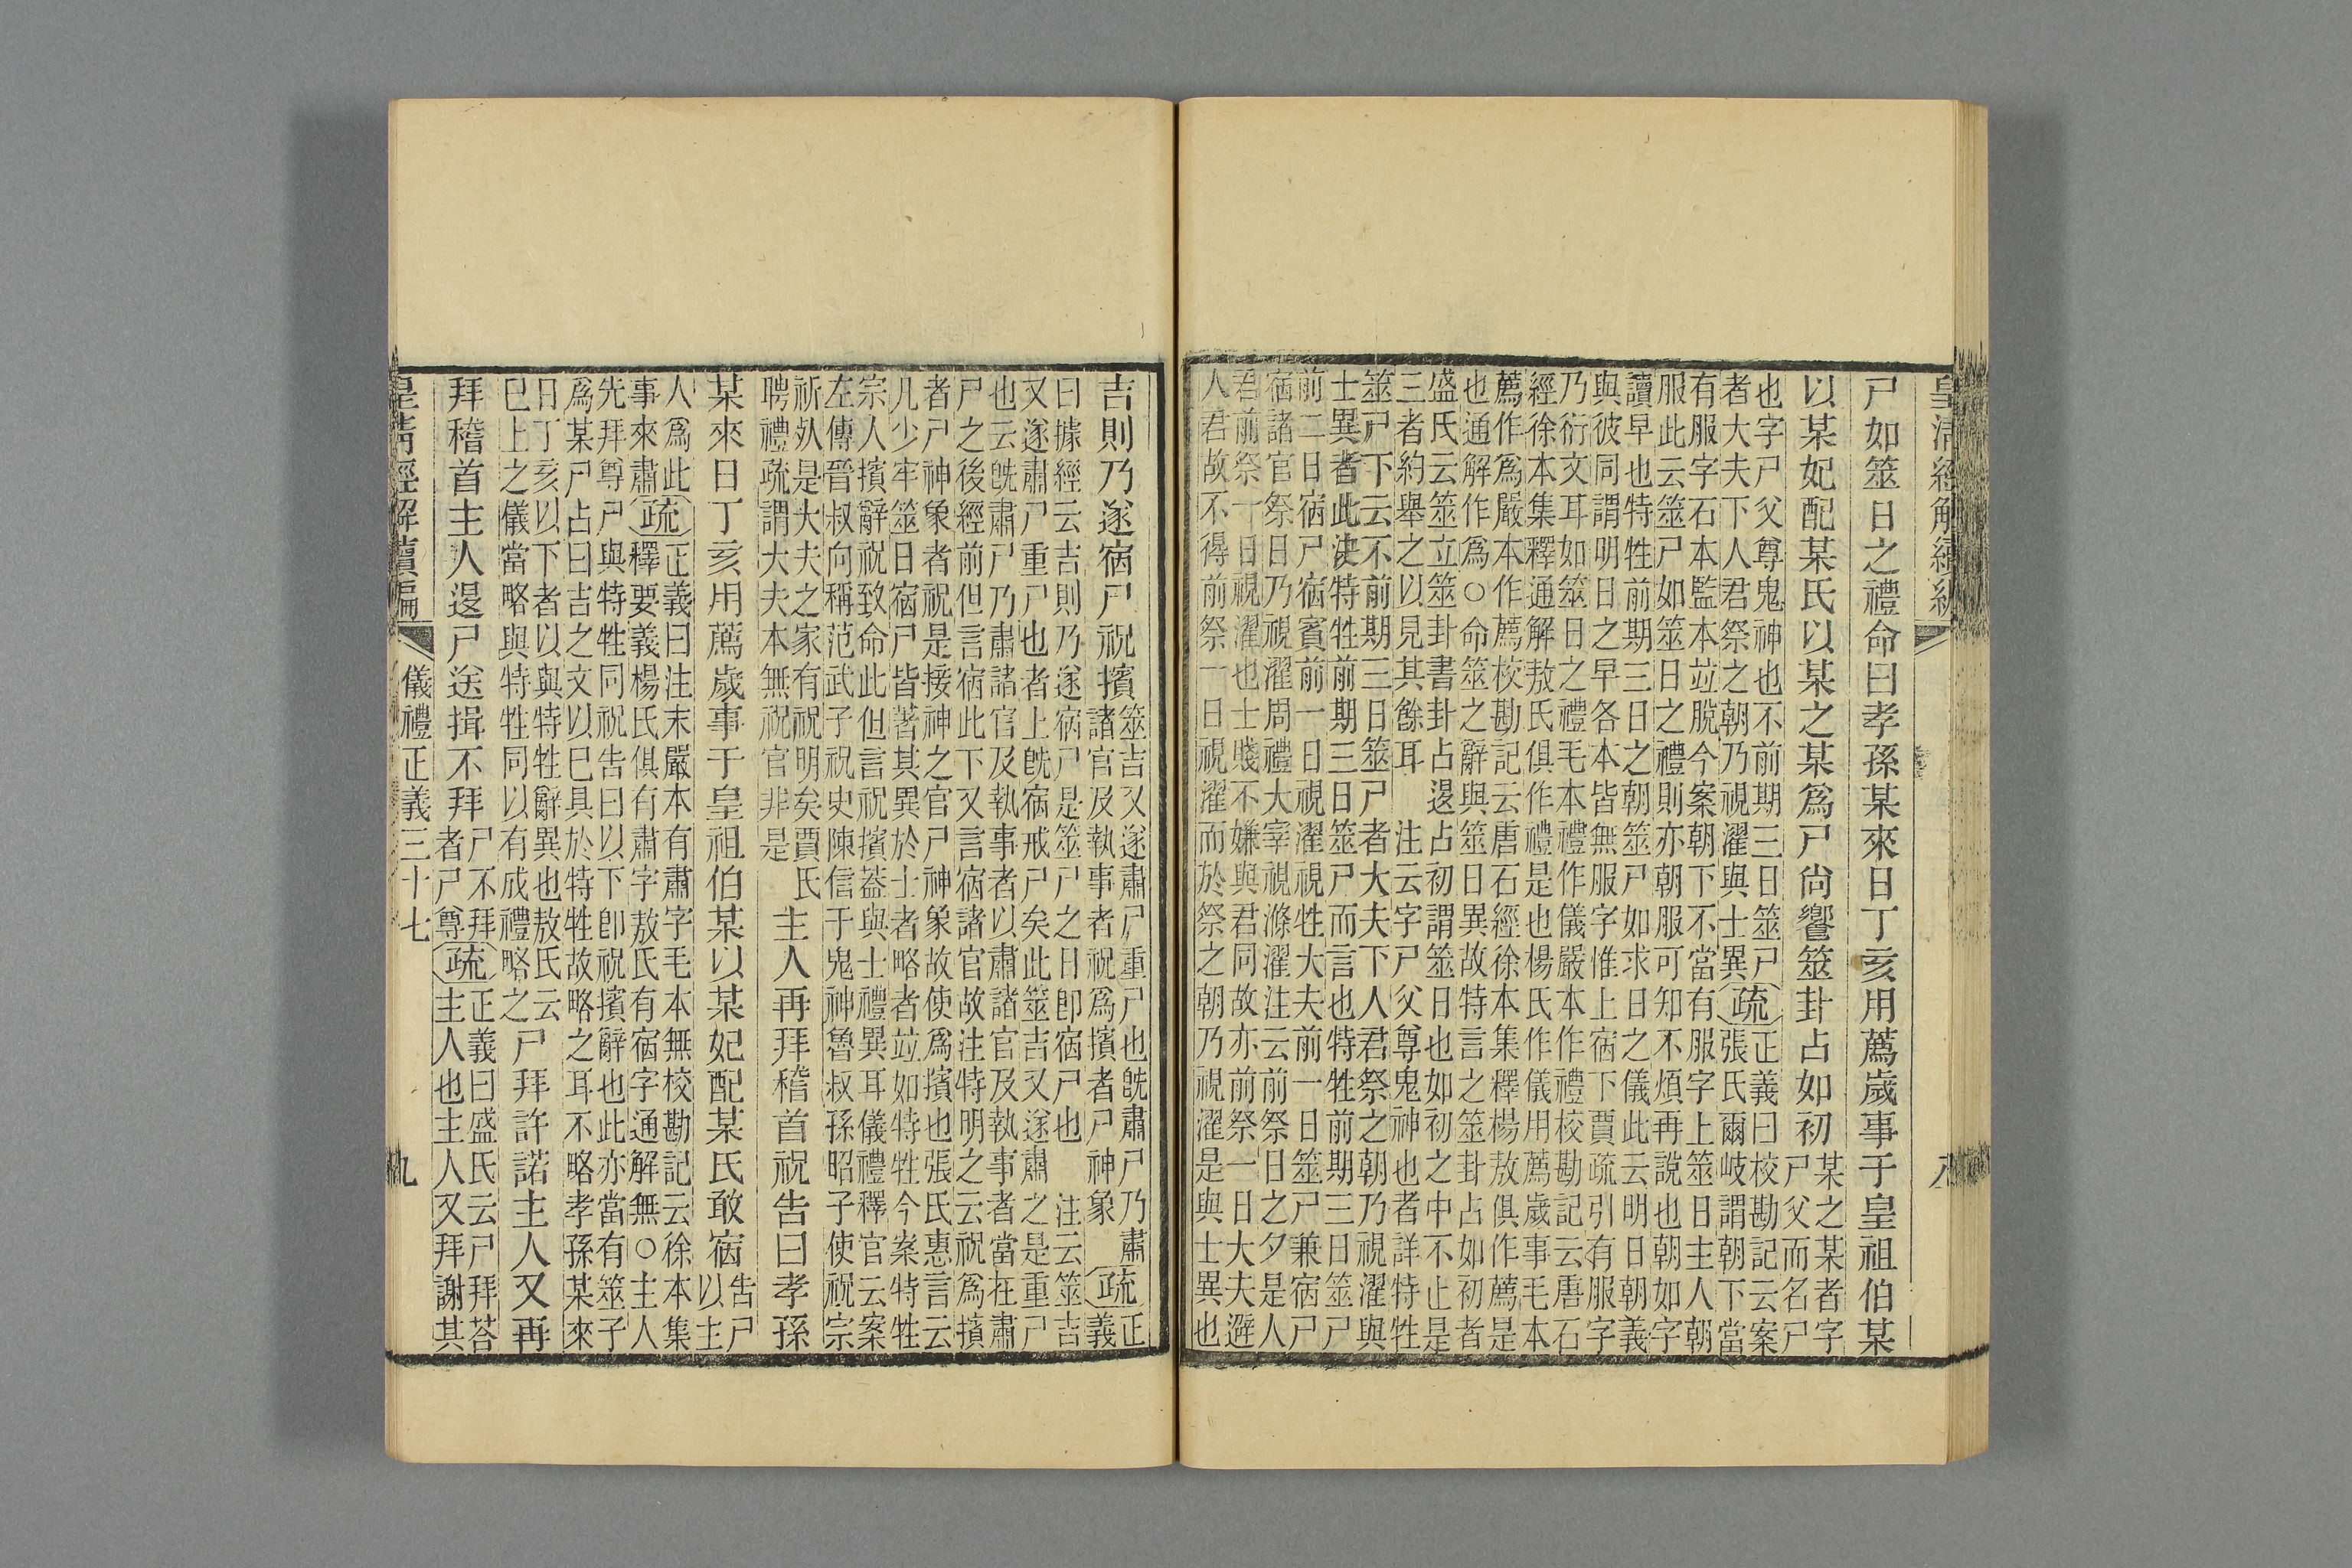 皇清經解續編
八
尸如筮日之禮命曰孝孫某來日丁亥用薦歲事于皇祖伯某
以某妃配某氏以某之某爲尸尙饗筮卦占如初某之某者字
尸父而名尸
也字尸父尊鬼神也不前期三日筮尸
者大夫下人君祭之朝乃視濯與士異疏正義曰校勘記云案
張氏爾岐謂朝下當
有服字石本監本竝脫今案朝下不當有服字上筮日主人朝
服此云筮尸如筮日之禮則亦朝服可知不煩再說也朝如字
讀早也特牲前期三日之朝筮尸如求日之儀此云明日朝義
與彼同謂明日之早各本皆無服字惟上宿下賈疏引有服字
乃衍文耳如筮日之禮毛本禮作儀嚴本作禮校勘記云唐石
經徐本集釋通解敖氏俱作禮是也楊氏作儀用薦歲事毛本
薦作爲嚴本作薦校勘記云唐石經徐本集釋楊敖俱作薦是
也通解作爲○命筮之辭與筮日異故特言之筮卦占如初者
盛氏云筮立筮卦書卦占退占初謂筮日也如初之中不止是
三者約舉之以見其餘耳 注云字尸父尊鬼神也者詳特牲
筮尸下云不前期三日筮尸者大夫下人君祭之朝乃視濯與
士異者此決特牲前期三日筮尸而言也特牲前期三日筮尸
前二日宿尸宿賓前一日視濯視牲大夫前一日筮尸兼宿尸
宿諸官祭日乃視濯周禮大宰視滌濯注云前祭日之夕是人
君前祭一日視濯也士賤不嫌與君同故亦前祭一日大夫避
人君故不得前祭一日視濯而於祭之朝乃視濯是與士異也
吉則乃遂宿尸祝擯筮吉又遂肅尸重尸也旣肅尸乃肅
諸官及執事者祝爲擯者尸神象疏正
義
曰據經云吉則乃遂宿尸是筮尸之日卽宿尸也 注云筮吉
又遂肅尸重尸也者上旣宿戒尸矣此筮吉又遂肅之是重尸
也云旣肅尸乃肅諸官及執事者以肅諸官及執事者當在肅
尸之後經前但言宿此下又言宿諸官故注特明之云祝爲擯
者尸神象者祝是接神之官尸神象故使爲擯也張氏惠言云
凡少牢筮日宿尸皆著其異於士者略者竝如特牲今案特牲
宗人擯辭祝致命此但言祝擯葢與士禮異耳儀禮釋官云案
左傳晉叔向稱范武子祝史陳信于鬼神魯叔孫昭子使祝宗
祈死是大夫之家有祝明矣賈氏
聘禮疏謂大夫本無祝官非是
主人再拜稽首祝告曰孝孫
某來日丁亥用薦歲事于皇祖伯某以某妃配某氏敢宿告尸
以主
人爲此
事來肅疏正義曰注末嚴本有肅字毛本無校勘記云徐本集
釋要義楊氏俱有肅字敖氏有宿字通解無○主人
先拜尊尸與特牲同祝告曰以下卽祝擯辭也此亦當有筮子
爲某尸占曰吉之文以已具於特牲故略之耳不略孝孫某來
日丁亥以下者以與特牲辭異也敖氏云
已上之儀當略與特牲同以有成禮略之
尸拜許諾主人又再
拜稽首主人退尸送揖不拜尸不拜
者尸尊疏正義曰盛氏云尸拜荅
主人也主人又拜謝其
皇清經解續編
儀禮正義三十七
九